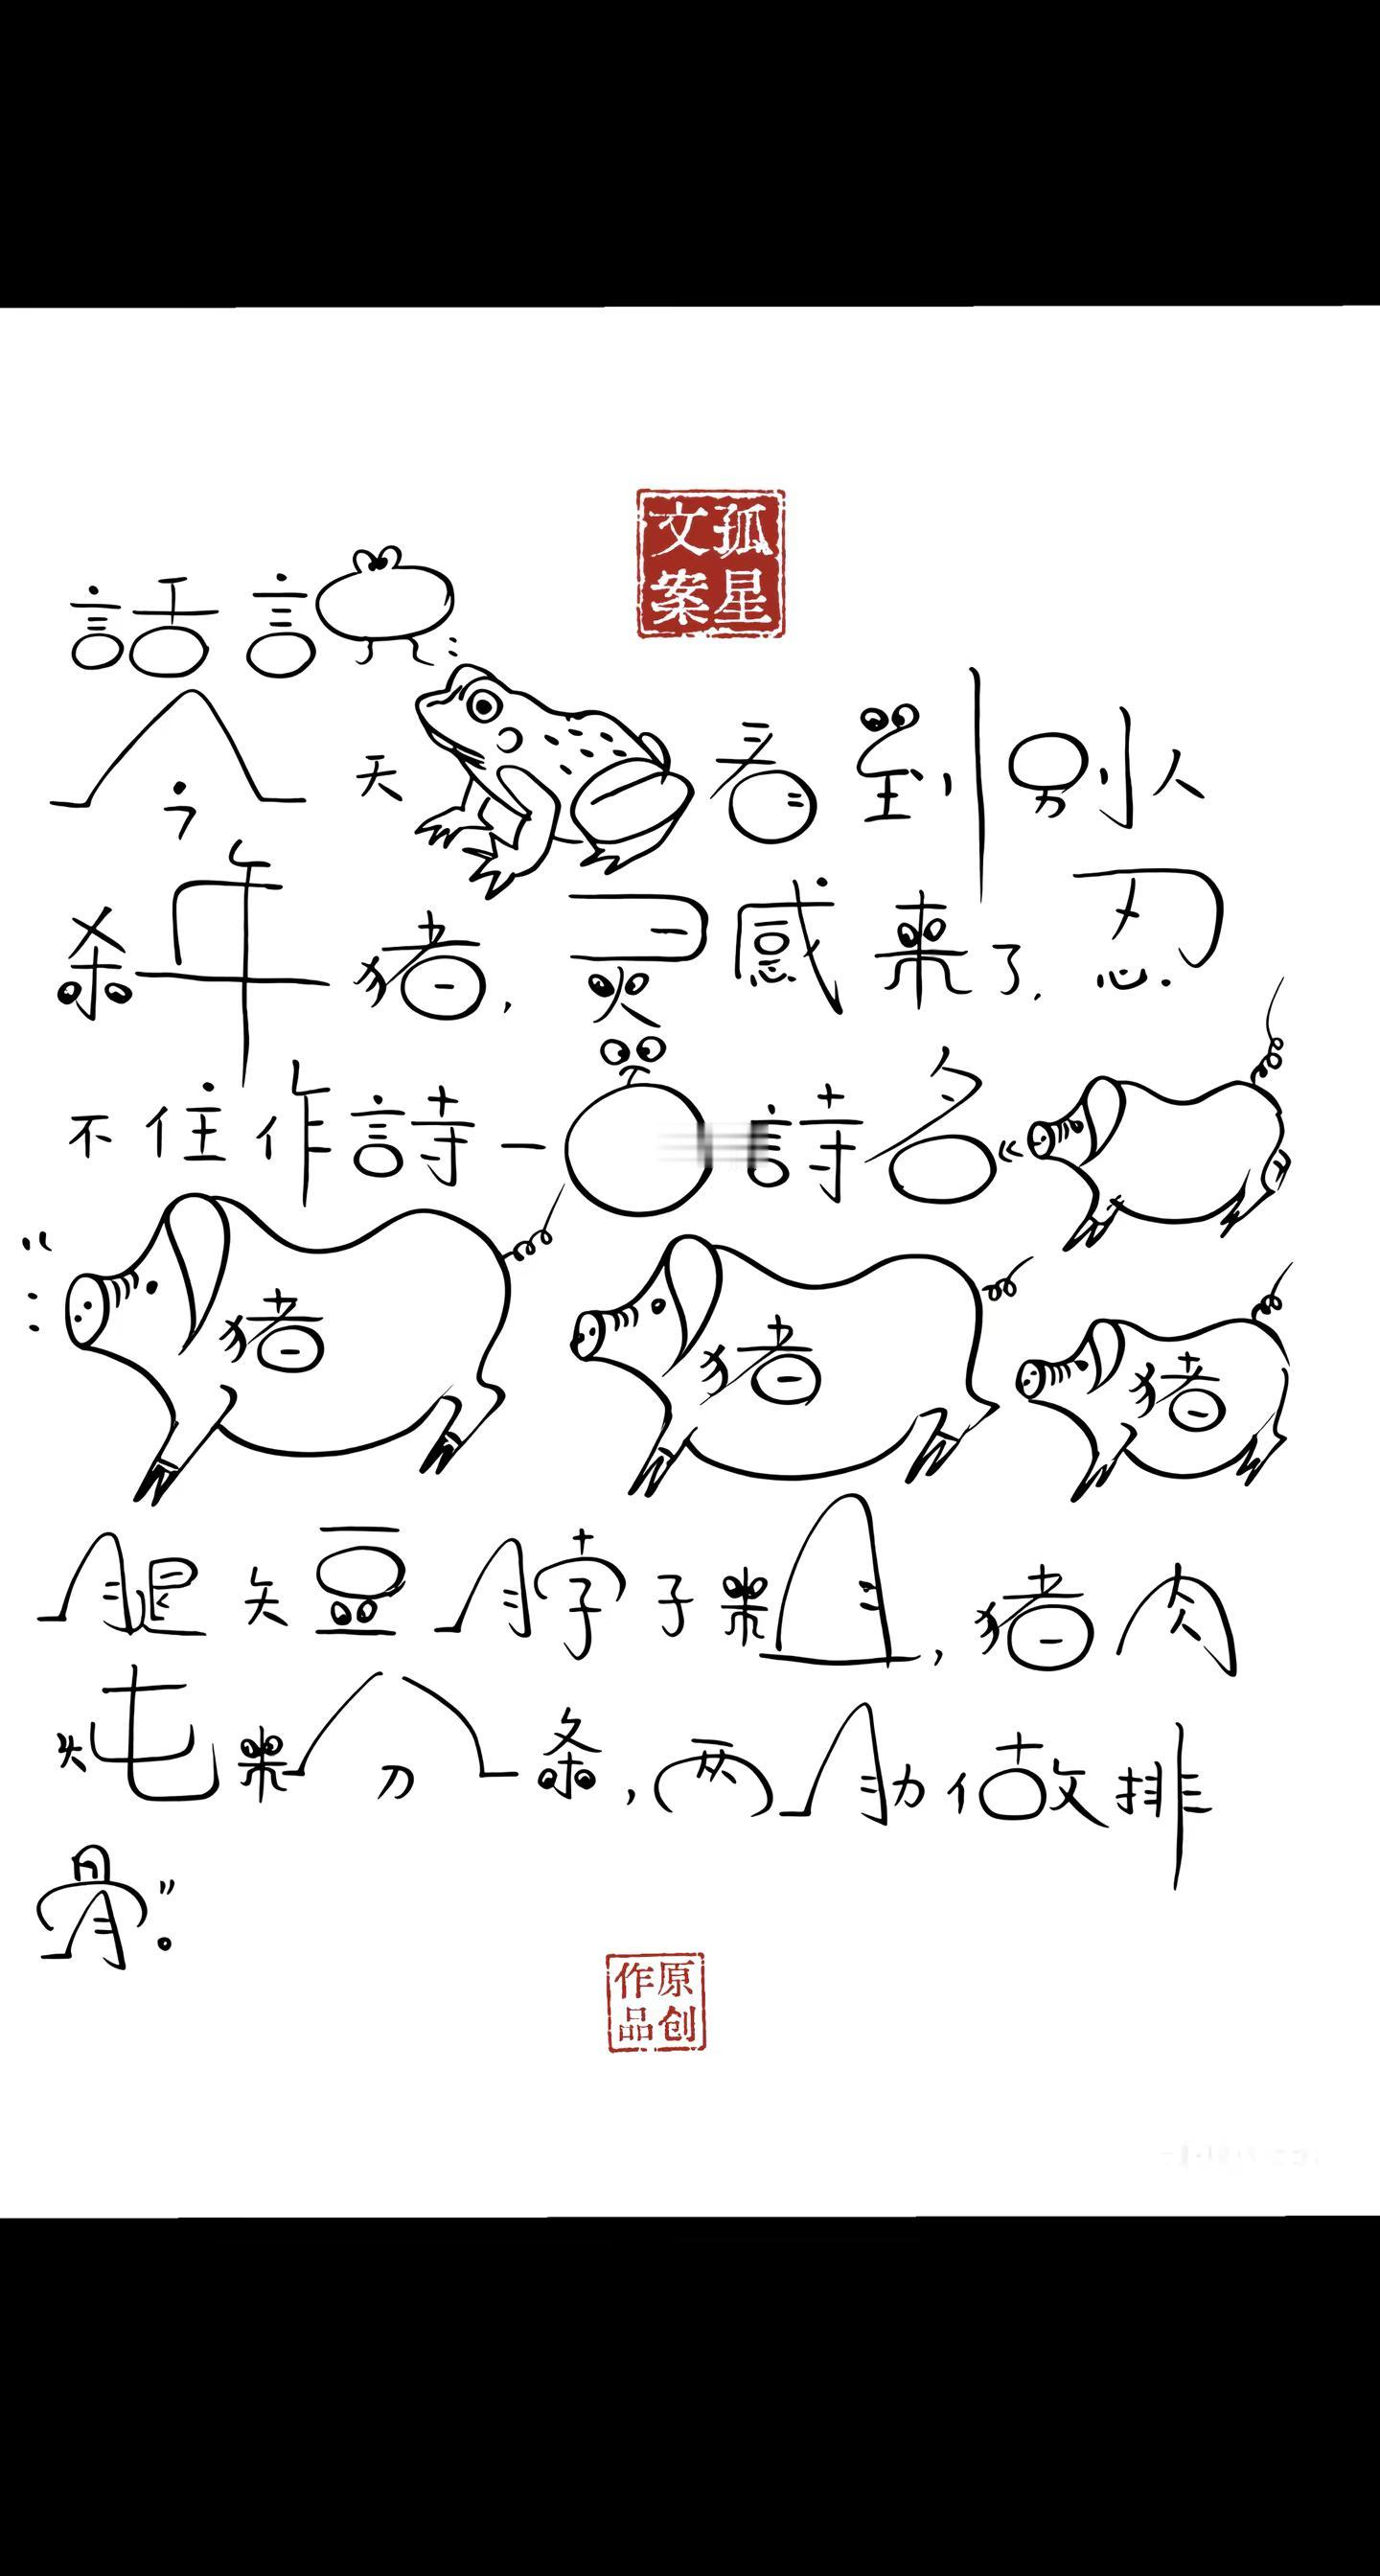 孤星文案
話説:
今天看到别人
杀年猪,灵感来了,忍
不住作詩一首詩名《
》:
猪猪猪
腿短脖子粗,猪肉
炖粉条,两肋做排
骨"。
原创作品